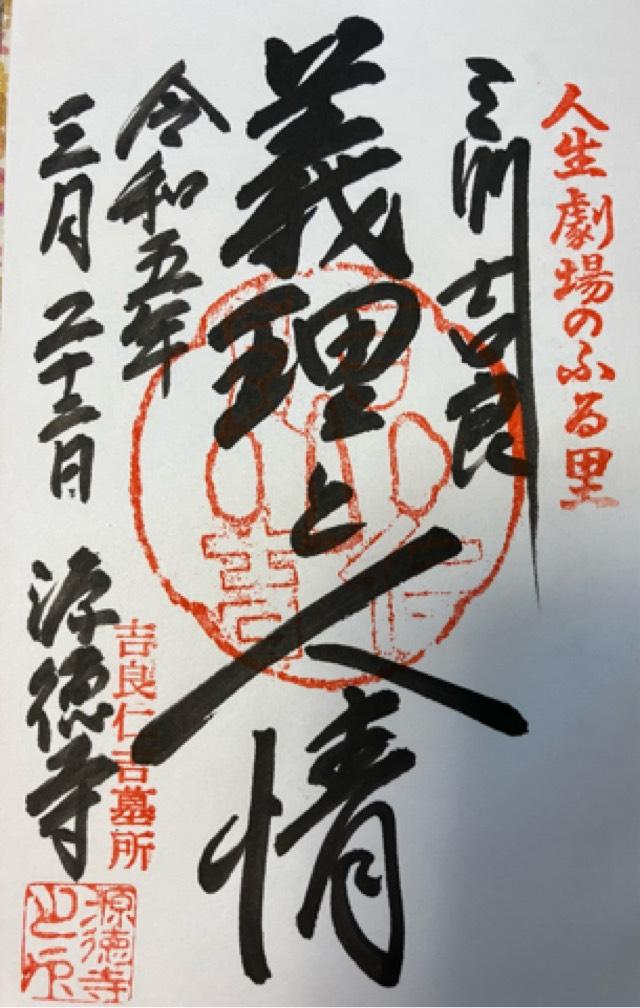 人生劇場のふる里
三州吉良
義理と人情
令和五年
三月二十二日
源徳寺
吉良仁吉墓所
源徳寺